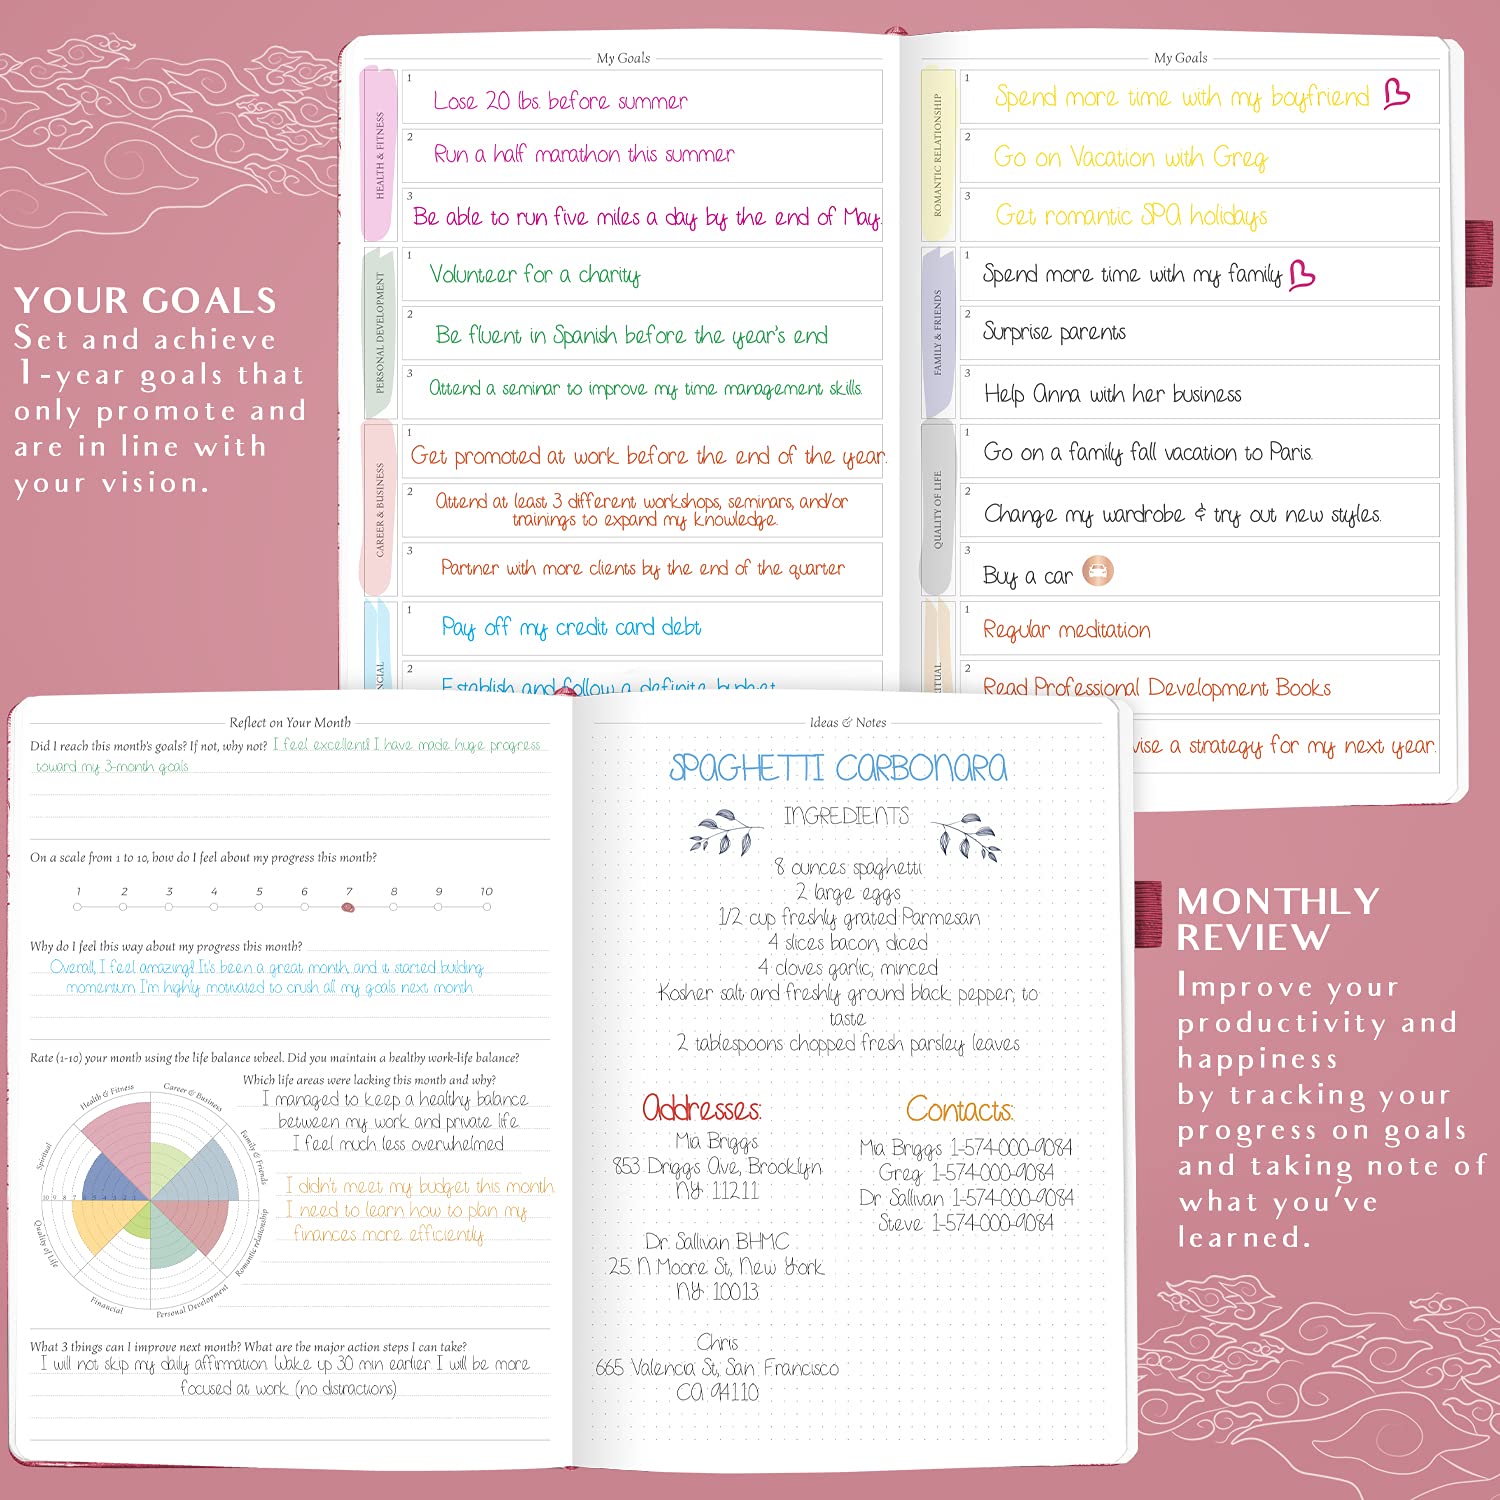 YOUR GOALS
Set and achieve
1-year goals that
only promote and
are in line with
your vision.
My Goals
HEALTH & FITNESS
1
Lose 20 lbs. before summer
2
Run a half marathon this summer
3
Be able to run five miles a day by the end of May.
PERSONAL DEVELOPMENT
1
Volunteer for a charity
2
Be fluent in Spanish before the year's end
3
Attend a seminar to improve my time management skills.
CAREER & BUSINESS
1
Get promoted at work before the end of the year.
2
Attend at least 3 different workshops, seminars, and/or
trainings to expand my knowledge.
3
Partner with more clients by the end of the quarter
1
Pay off my credit card debt
2
Establish and follow a definite budget
My Goals
ROMANTIC RELATIONSHIP
1
Spend more time with my boyfriend
2
Go on Vacation with Greg
3
Get romantic SPA holidays
FAMILY & FRIENDS
1
Spend more time with my family
2
Surprise parents
3
Help Anna with her business
QUALITY OF LIFE
1
Go on a family fall vacation to Paris.
2
Change my wardrobe & try out new styles.
3
Buy a car
1
Regular meditation
2
Read Professional Development Books
vise a strategy for my next year.
Reflect on Your Month
Did I reach this month's goals? If not, why not? I feel excellent! I have made huge progress
toward my 3-month goals
On a scale from 1 to 10, how do I feel about my progress this month?
1 2 3 4 5 6 7 8 9 10
Why do I feel this way about my progress this month?
Overall, I feel amazing! It's been a great month, and it started building
momentum. I'm highly motivated to crush all my goals next month
Rate (1-10) your month using the life balance wheel. Did you maintain a healthy work-life balance?
Health & Fitness
Career & Business
Family & Friends
Romantic relationship
Personal Development
Financial
Quality of Life
Spiritual
10 9 8 7 6 5 4 3 2 1
Which life areas were lacking this month and why?
I managed to keep a healthy balance
between my work and private life.
I feel much less overwhelmed
I didn't meet my budget this month
I need to learn how to plan my
finances more efficiently
What 3 things can I improve next month? What are the major action steps I can take?
I will not skip my daily affirmation. Wake up 30 min earlier. I will be more
focused at work (no distractions)
Ideas & Notes
SPAGHETTI CARBONARA
INGREDIENTS
8 ounces spaghetti
2 large eggs
1/2 cup freshly grated Parmesan
4 slices bacon, diced
4 cloves garlic, minced
Kosher salt and freshly ground black pepper, to
taste
2 tablespoons chopped fresh parsley leaves
Addresses:
Mia Briggs
853 Driggs Ave, Brooklyn
NY 11211
Dr. Sallivan BHMC
25 N Moore St, New York
NY 10013
Chris
665 Valencia St, San Francisco
CA 94110
Contacts:
Mia Briggs 1-574-000-9084
Greg 1-574-000-9084
Dr Sallivan 1-574-000-9084
Steve 1-574-000-9084
MONTHLY
REVIEW
Improve your
productivity and
happiness
by tracking your
progress on goals
and taking note of
what you've
learned.